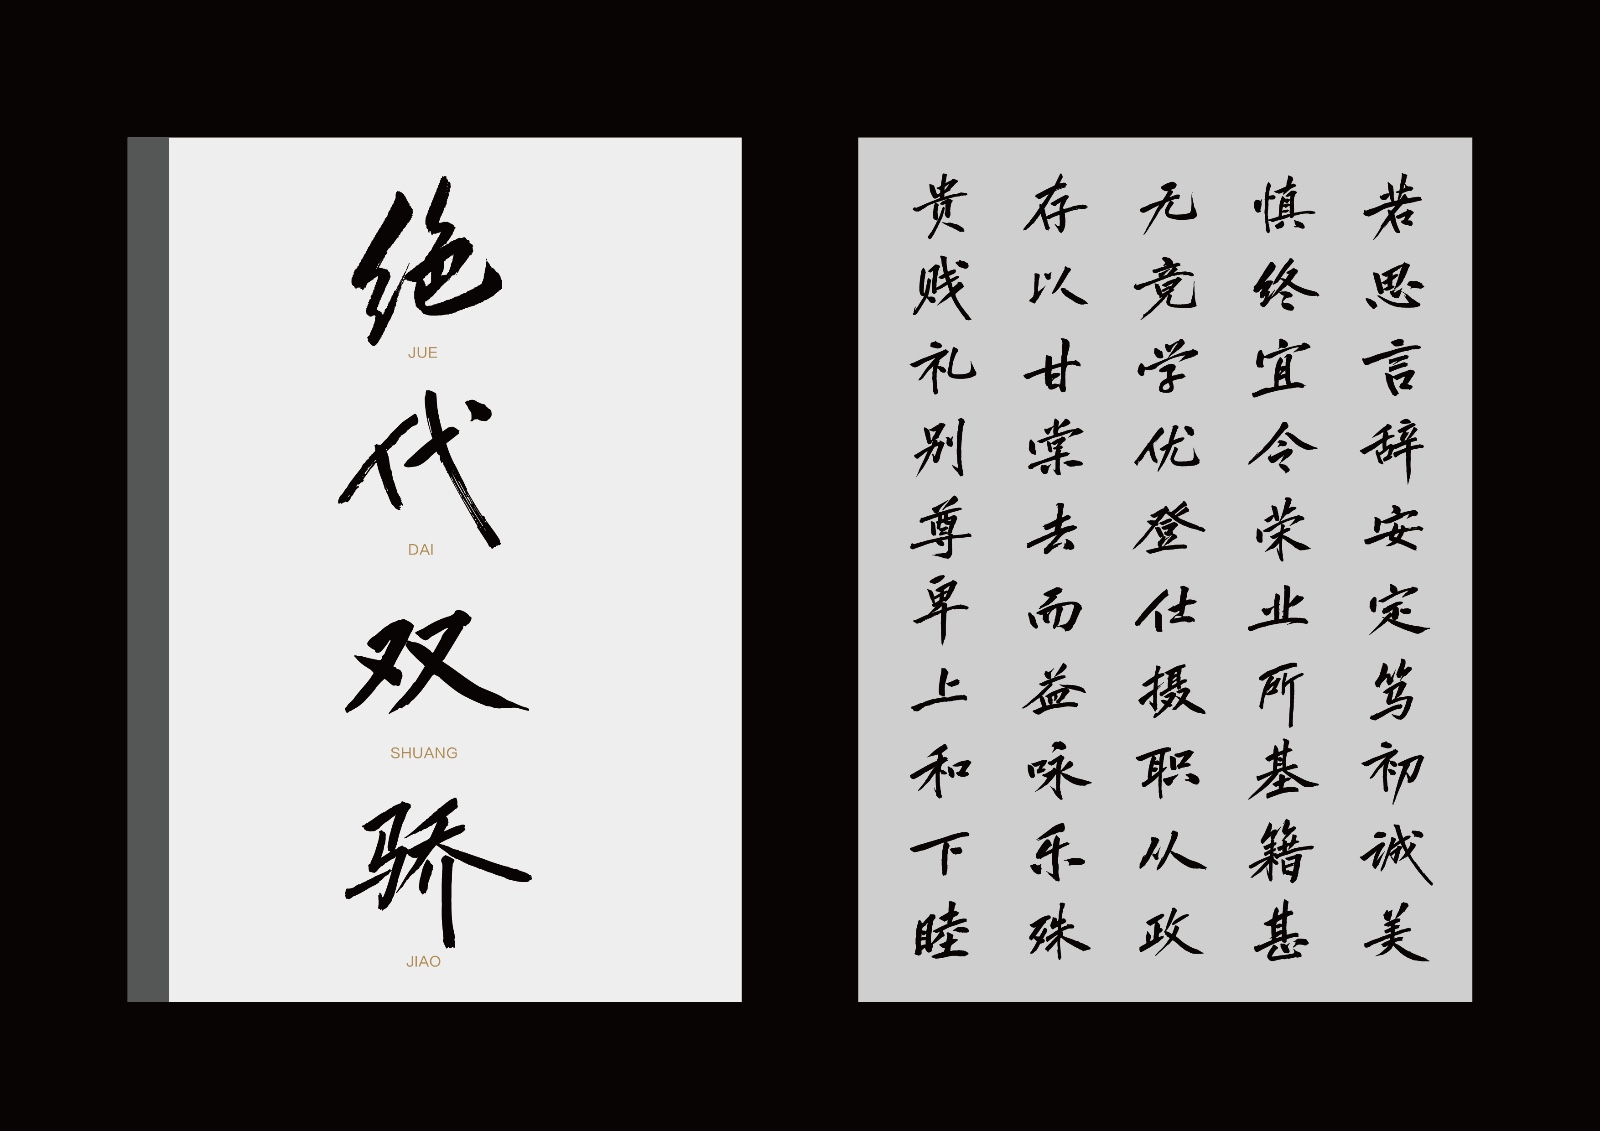 绝
JUE
代
DAI
双
SHUANG
骄
JIAO
若思言辞安定笃初诚美
慎终宜令荣业所基籍甚
无竟学优登仕摄职从政
存以甘棠去而益咏乐殊
贵贱礼别尊卑上和下睦